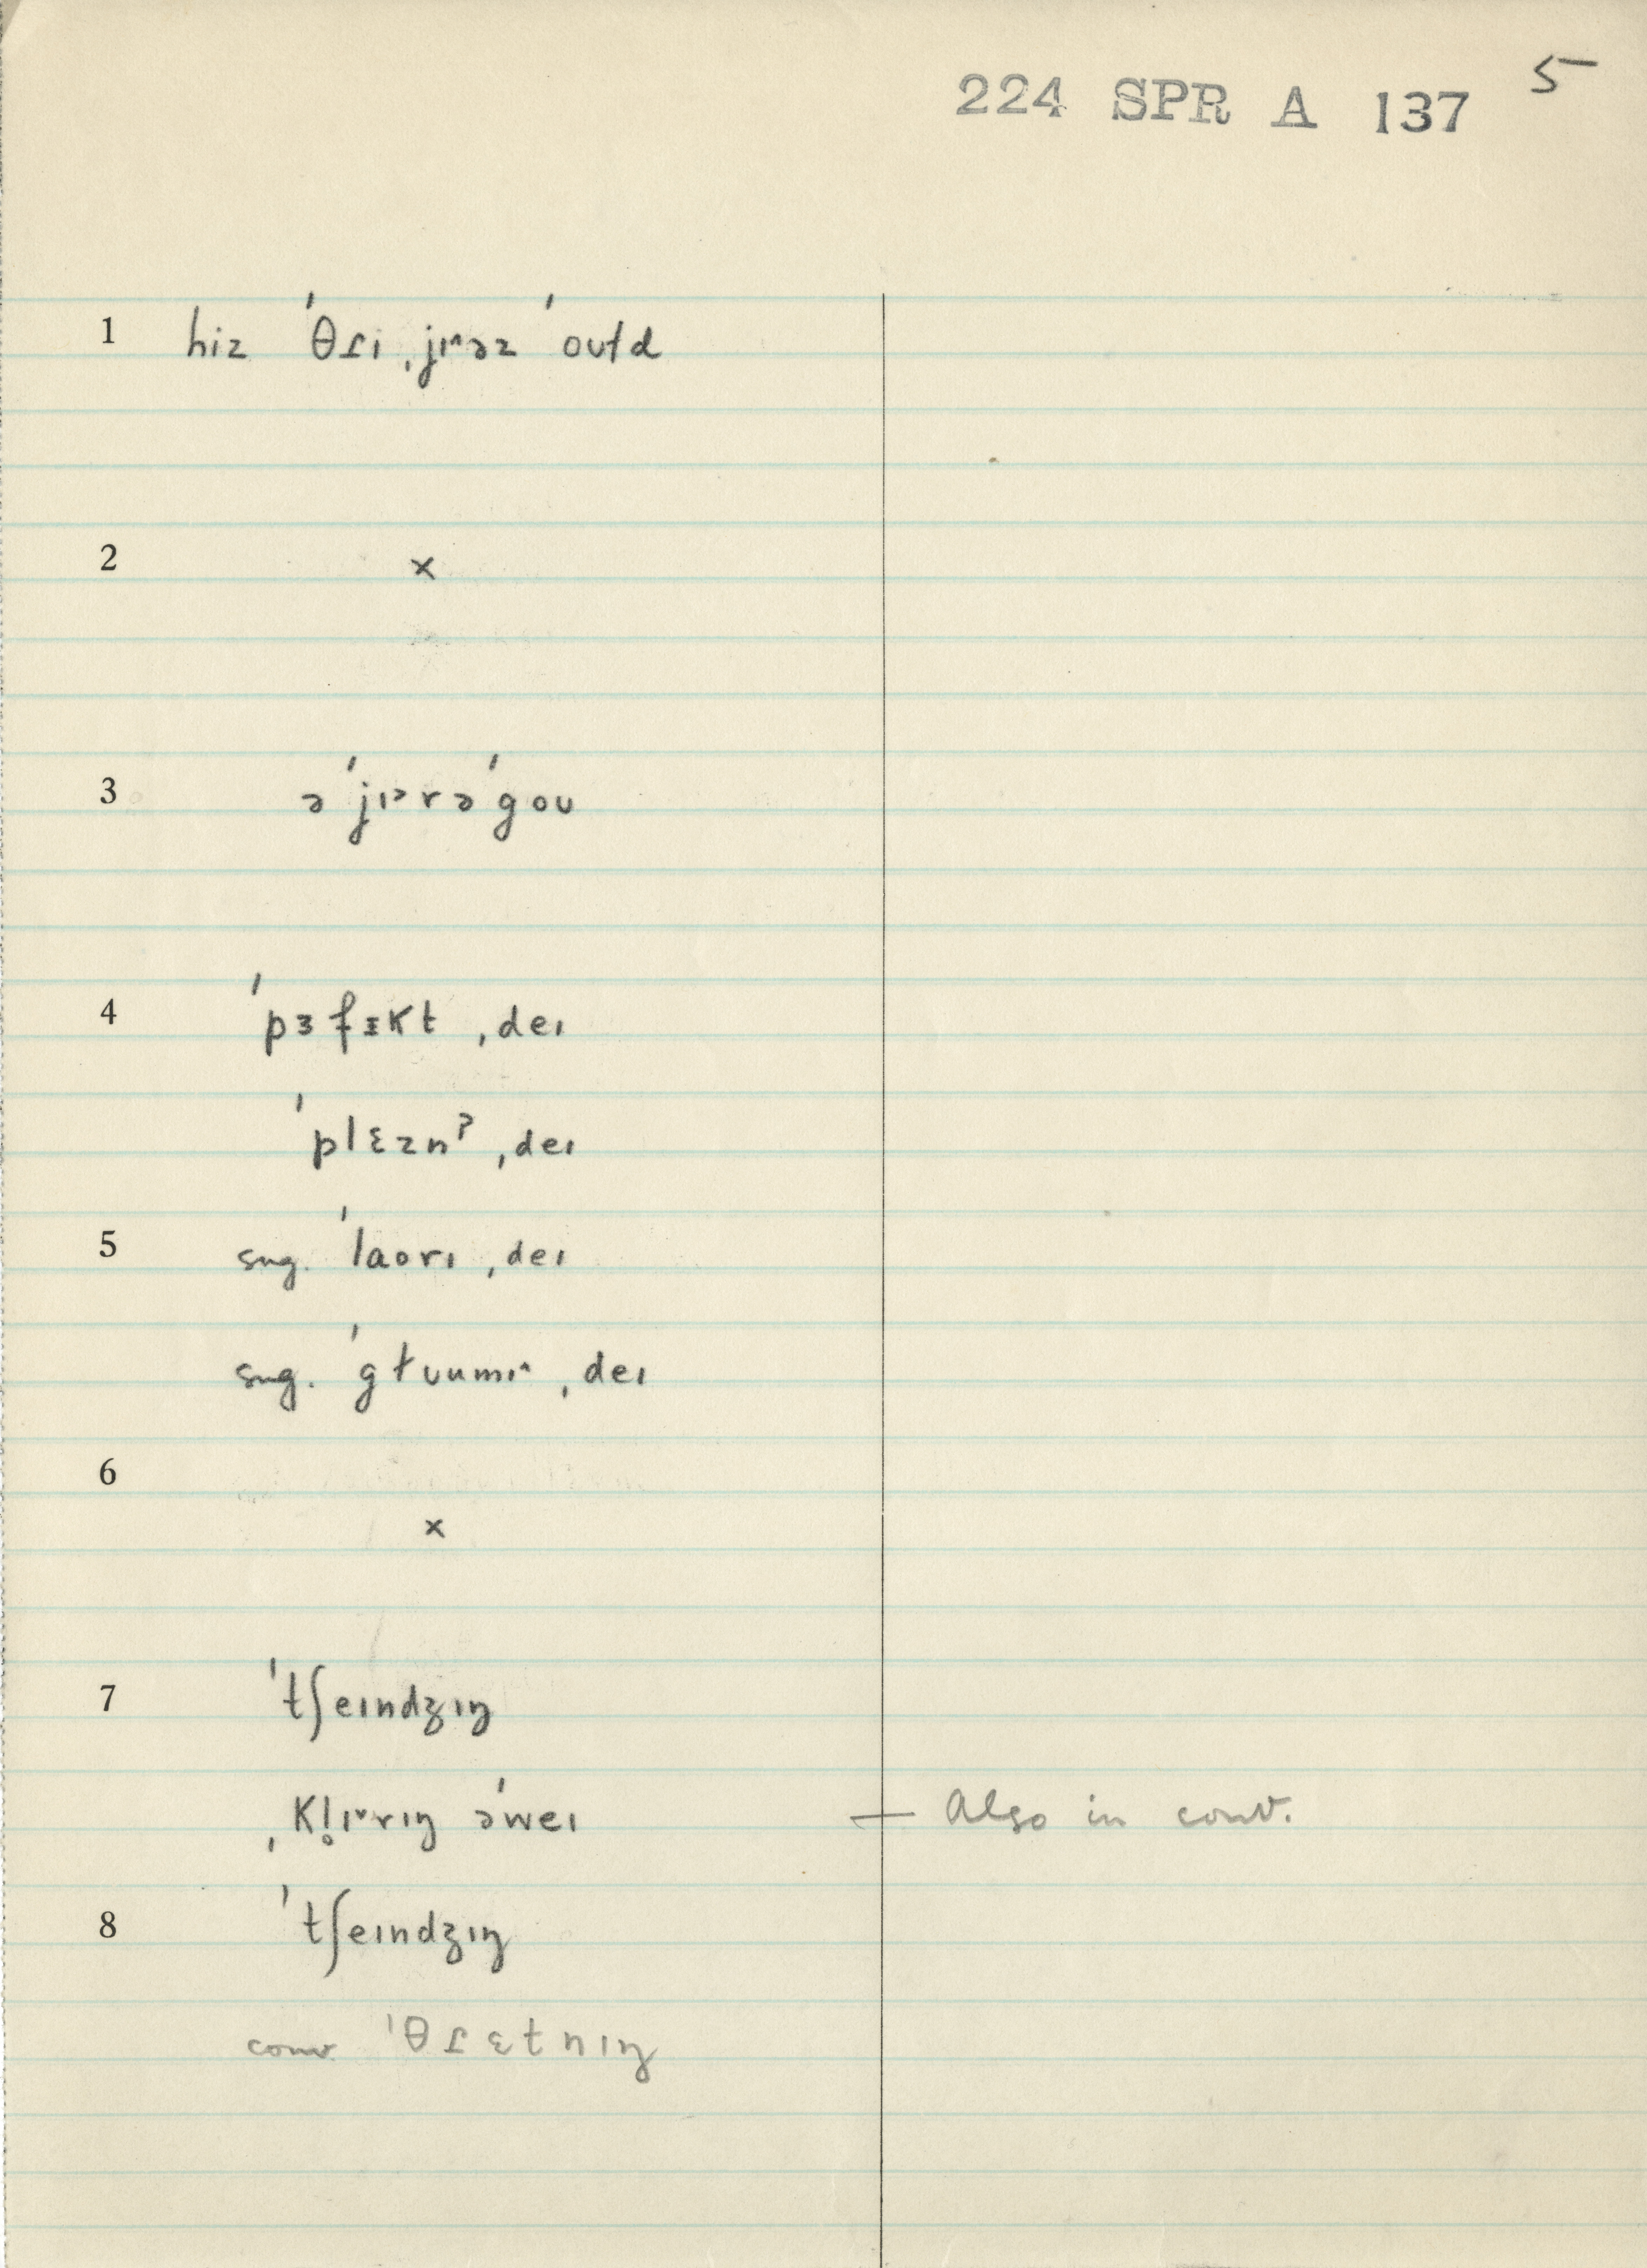 224 SPR A 137 5
1 hiz ˈθɾi ˌjɪ˄əz ˈoʊɫd
2 ×
3 ə ˈjɪᵊrə ˈgoʊ
4 ˈpɜfɪkt ˌdeɪ
ˈplɛznˀ ˌdeɪ
5 sug. ˈlaorɪ ˌdeɪ
sug. ˈgɫuumɪ˄ ˌdeɪ
6
×
7 ˈtʃeɪndʒɪŋ
ˌkl̥ɪ˅rɪŋ əˈweɪ — Also in conv.
8 ˈtʃeɪndʒɪŋ
conv. ˈθɾɛtnɪŋ